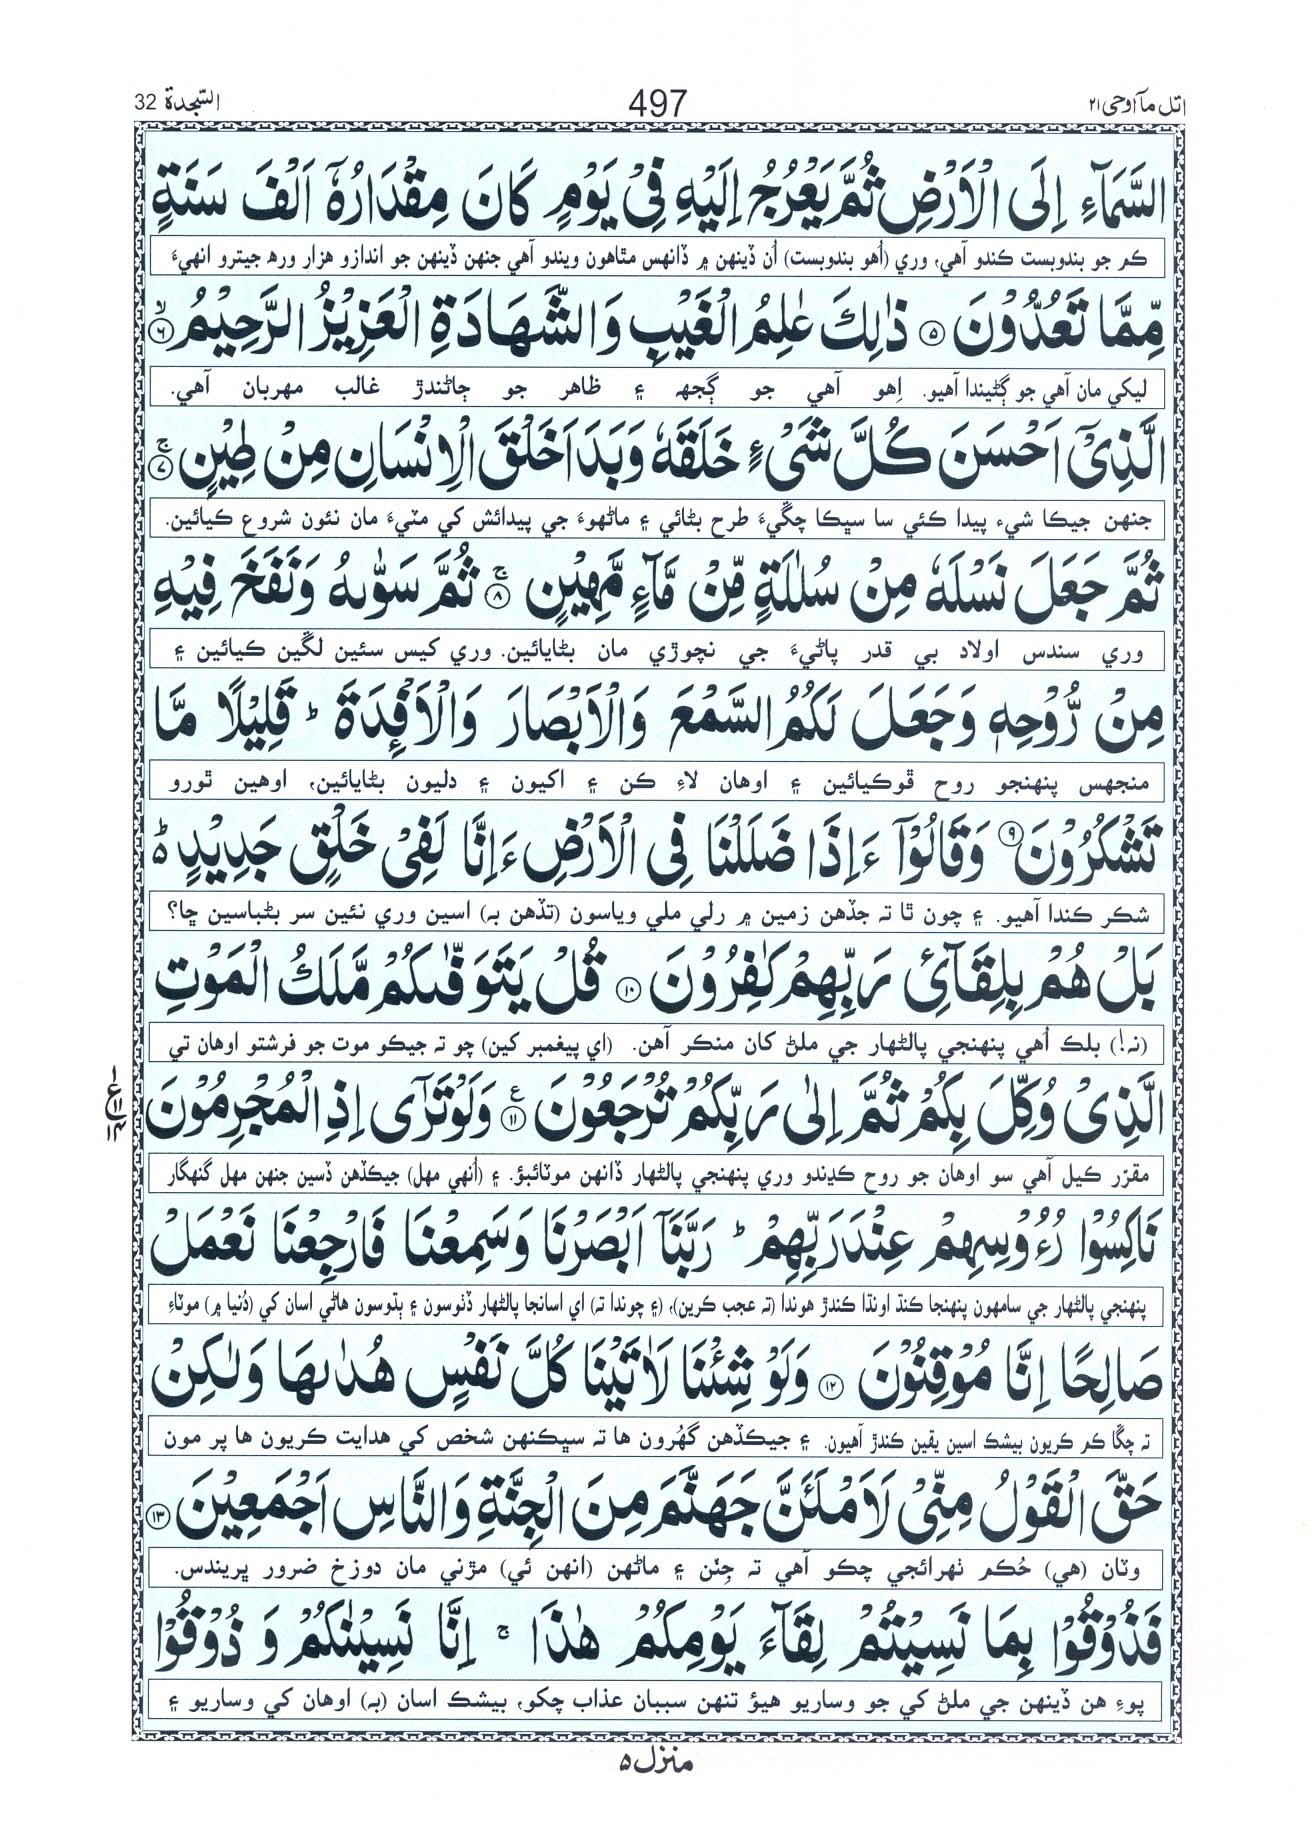 اتل مآ اوحی ۲۱
497
السّجدة 32
السَّمَآءِ اِلَى الْاَرْضِ ثُمَّ يَعْرُجُ اِلَيْهِ فِيْ يَوْمٍ كَانَ مِقْدَارُهٗٓ اَلْفَ سَنَةٍ
ڪم جو بندوبست ڪندو آهي، وري (اُهو بندوبست) اُن ڏينهن ۾ ڏانهس مٿاهون ويندو آهي جنهن ڏينهن جو اندازو هزار ورهه جيترو انهيءَ
مِّمَّا تَعُدُّوْنَ ۝۵ ذٰلِكَ عٰلِمُ الْغَيْبِ وَالشَّهَادَةِ الْعَزِيْزُ الرَّحِيْمُ ۝۶ ۙ
ليکي مان آهي جو ڳڻيندا آهيو. اِهو آهي جو ڳجهه ۽ ظاهر جو ڄاڻندڙ غالب مهربان آهي.
الَّذِيْٓ اَحْسَنَ كُلَّ شَيْءٍ خَلَقَهٗ وَبَدَاَ خَلْقَ الْاِنْسَانِ مِنْ طِيْنٍ ۝۷ ۚ
جنهن جيڪا شيء پيدا ڪئي سا سڀڪا چڱيءَ طرح بڻائي ۽ ماڻهوءَ جي پيدائش کي مٽيءَ مان نئون شروع ڪيائين.
ثُمَّ جَعَلَ نَسْلَهٗ مِنْ سُلٰلَةٍ مِّنْ مَّآءٍ مَّهِيْنٍ ۝۸ ۚ ثُمَّ سَوّٰىهُ وَنَفَخَ فِيْهِ
وري سندس اولاد بي قدر پاڻيءَ جي نچوڙي مان بڻايائين. وري کيس سئين لڱين ڪيائين ۽
مِنْ رُّوْحِهٖ وَجَعَلَ لَكُمُ السَّمْعَ وَالْاَبْصَارَ وَالْاَفْـِٕدَةَ ؕ قَلِيْلًا مَّا
منجهس پنهنجو روح ڦوڪيائين ۽ اوهان لاءِ ڪن ۽ اکيون ۽ دليون بڻايائين، اوهين ٿورو
تَشْكُرُوْنَ ۝۹ وَقَالُوْٓا ءَاِذَا ضَلَلْنَا فِي الْاَرْضِ ءَاِنَّا لَفِيْ خَلْقٍ جَدِيْدٍ ؕ۬
شڪر ڪندا آهيو. ۽ چون ٿا ته جڏهن زمين ۾ رلي ملي وياسون (تڏهن به) اسين وري نئين سر بڻباسين ڇا؟
بَلْ هُمْ بِلِقَآئِ رَبِّهِمْ كٰفِرُوْنَ ۝۱۰ قُلْ يَتَوَفّٰىكُمْ مَّلَكُ الْمَوْتِ
(نه!) بلڪ اُهي پنهنجي پالڻهار جي ملڻ کان منڪر آهن. (اي پيغمبر کين) چو ته جيڪو موت جو فرشتو اوهان تي
الَّذِيْ وُكِّلَ بِكُمْ ثُمَّ اِلٰى رَبِّكُمْ تُرْجَعُوْنَ ۝۱۱ ع وَلَوْ تَرٰٓى اِذِ الْمُجْرِمُوْنَ
مقرّر ڪيل آهي سو اوهان جو روح ڪڍندو وري پنهنجي پالڻهار ڏانهن موٽائبؤ. ۽ (اُنهي مهل) جيڪڏهن ڏسين جنهن مهل گنهگار
نَاكِسُوْا رُءُوْسِهِمْ عِنْدَ رَبِّهِمْ ؕ رَبَّنَآ اَبْصَرْنَا وَسَمِعْنَا فَارْجِعْنَا نَعْمَلْ
پنهنجي پالڻهار جي سامهون پنهنجا ڪنڌ اونڌا ڪندڙ هوندا (ته عجب ڪرين)، (۽ چوندا ته) اي اسانجا پالڻهار ڏٺوسون ۽ ٻڌوسون هاڻي اسان کي (دُنيا ۾) موٽاءِ
صَالِحًا اِنَّا مُوْقِنُوْنَ ۝۱۲ وَلَوْ شِئْنَا لَاٰتَيْنَا كُلَّ نَفْسٍ هُدٰىهَا وَلٰكِنْ
ته چڱا ڪم ڪريون بيشڪ اسين يقين ڪندڙ آهيون. ۽ جيڪڏهن گهُرون ها ته سڀڪنهن شخص کي هدايت ڪريون ها پر مون
حَقَّ الْقَوْلُ مِنِّيْ لَاَمْلَئَنَّ جَهَنَّمَ مِنَ الْجِنَّةِ وَالنَّاسِ اَجْمَعِيْنَ ۝۱۳
وٽان (هي) حُڪم ٺهرائجي چڪو آهي ته جِنّن ۽ ماڻهن (انهن ئي) مڙني مان دوزخ ضرور ڀريندس.
فَذُوْقُوْا بِمَا نَسِيْتُمْ لِقَآءَ يَوْمِكُمْ هٰذَا ۚ اِنَّا نَسِيْنٰكُمْ وَ ذُوْقُوْا
پوءِ هن ڏينهن جي ملڻ کي جو وساريو هيؤ تنهن سببان عذاب چکو، بيشڪ اسان (به) اوهان کي وساريو ۽
منزل ۵